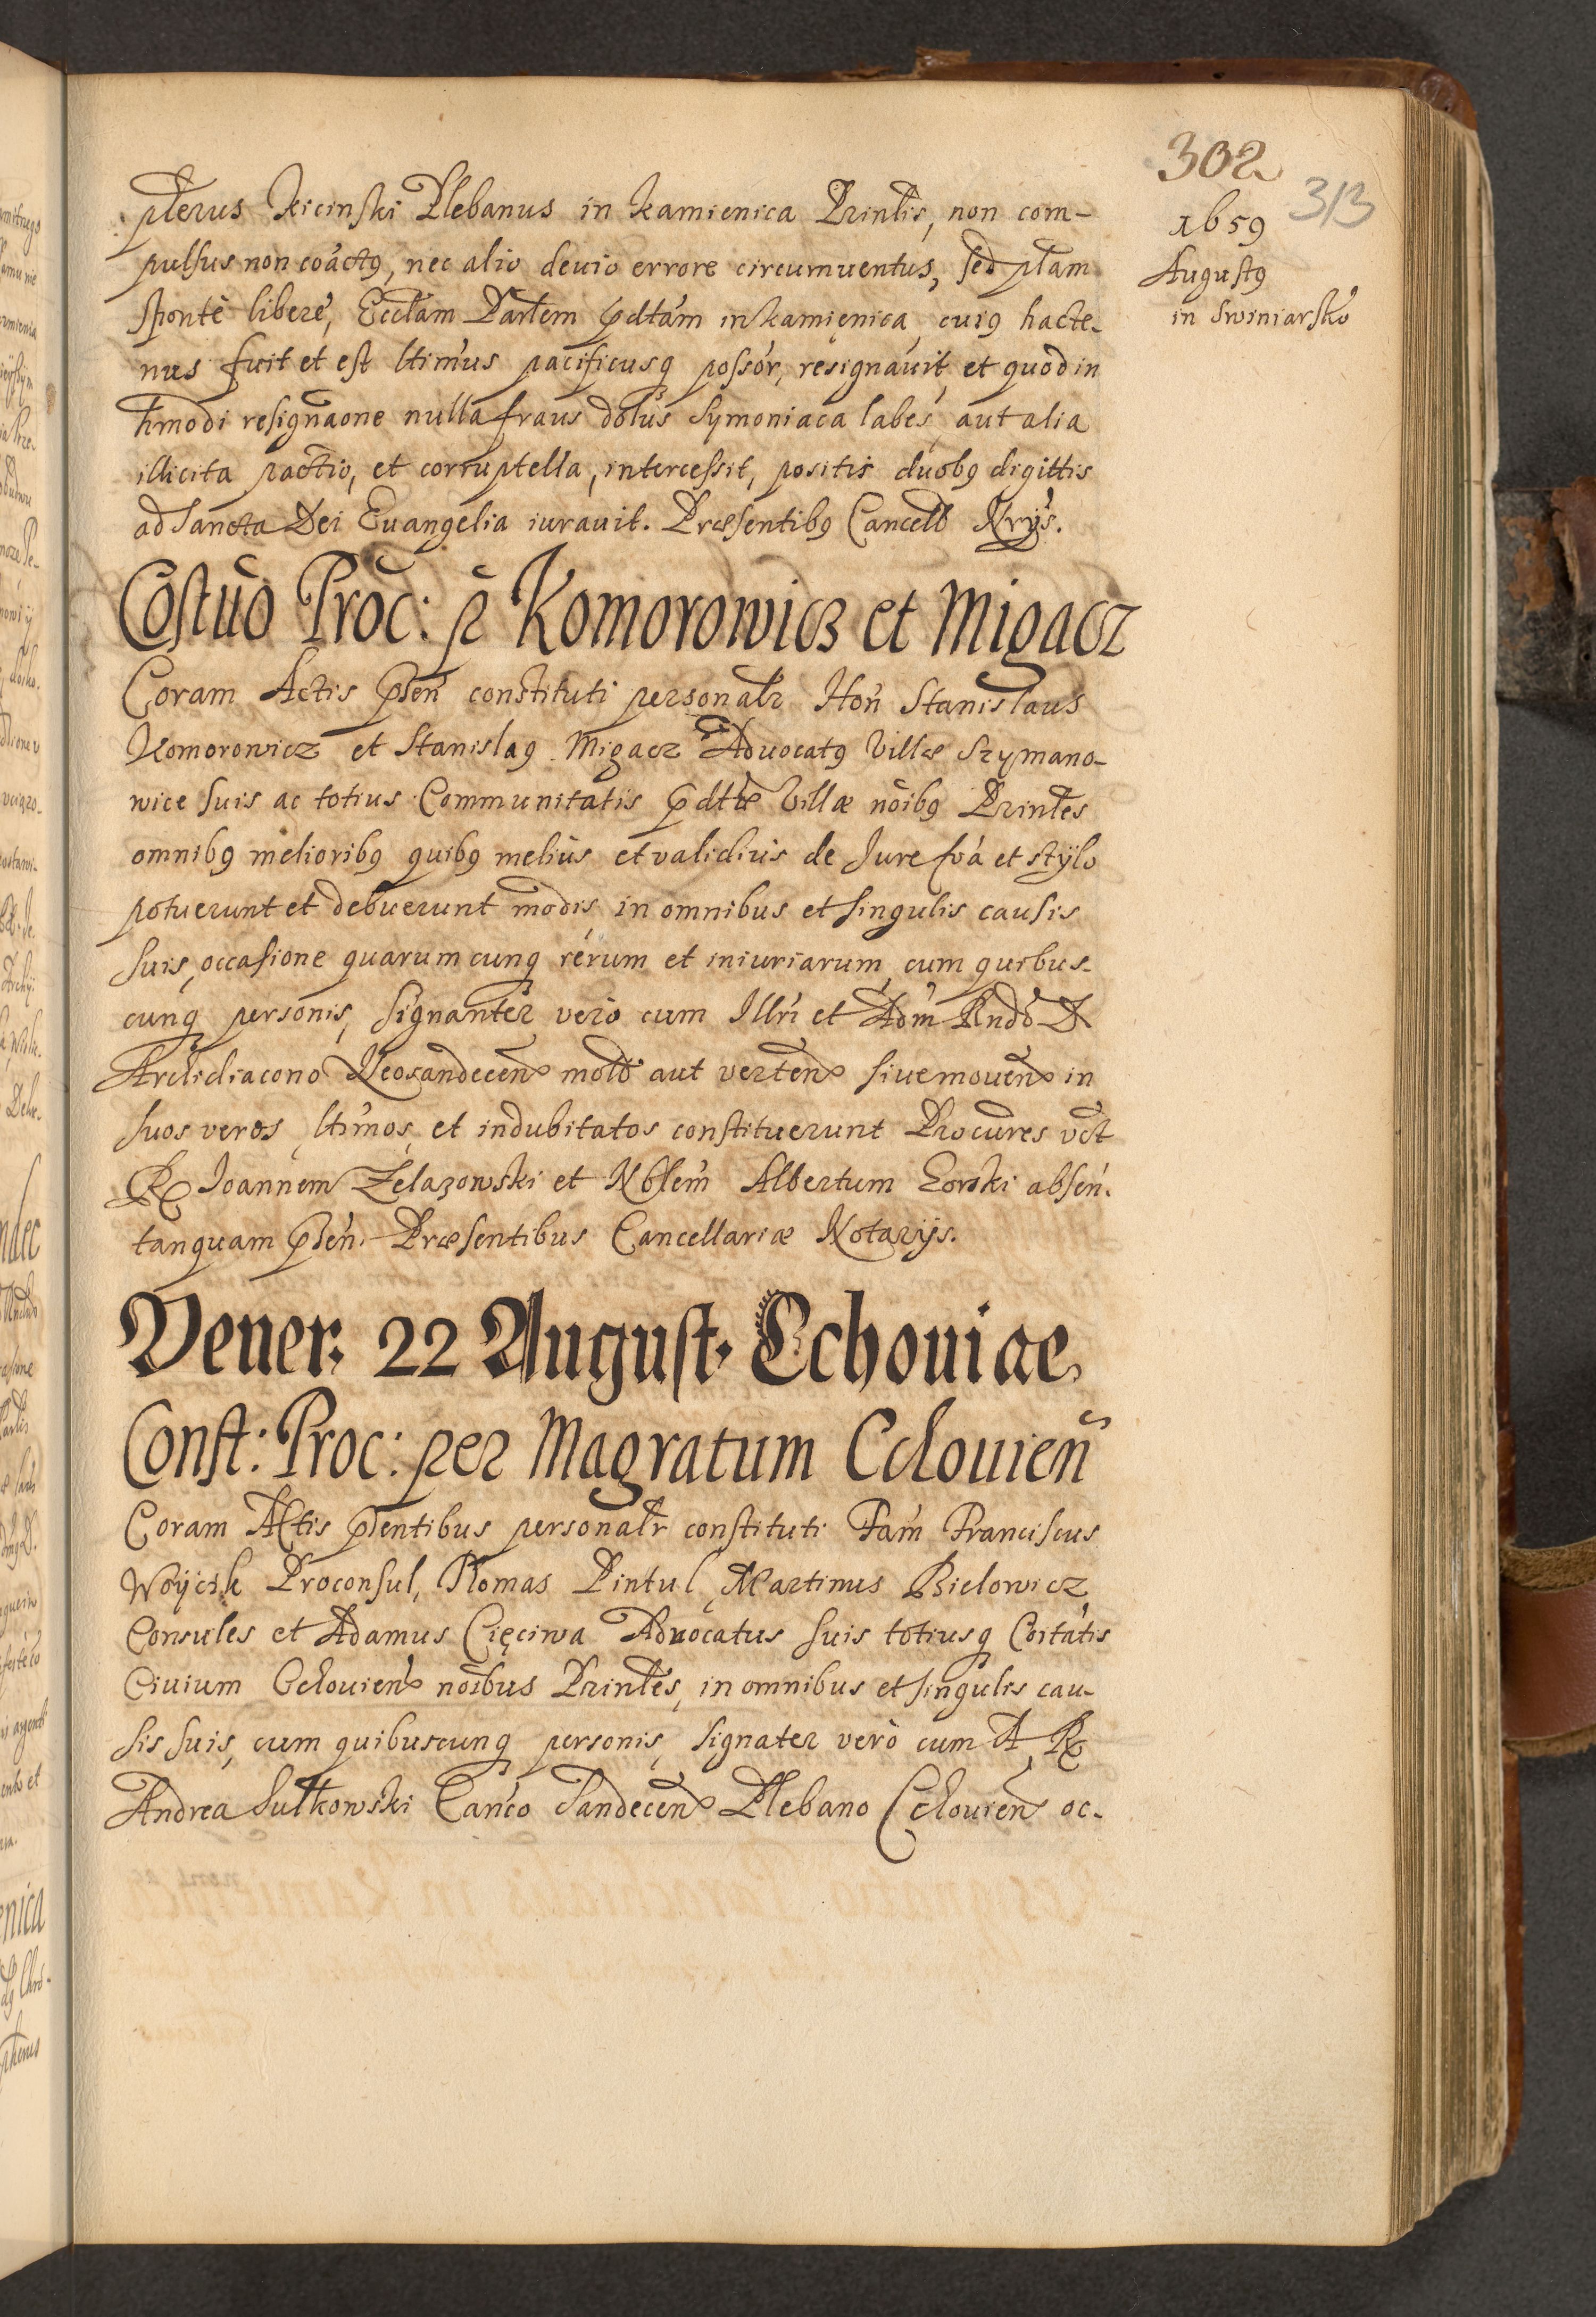 302
313
1659
Augustꝰ
in Swiniarsko
pterus Kicinski Plebanus in Kamienica Prinlis, non com-
pulsus non coactꝰ, nec alio deuio errore circumuentus, sed ptam
sponte libere, Ecclam Parlem pdtam in Kamięnica, cuiꝰ hacte-
nus fuit et est ltimus pacificusq possor, resignauit, et quod in
hmodi resignaone nulla fraus dolus Symoniaca labes, aut alia
illicita pactio, et corruptella, intercessit, positis duobꝰ digittis
ad Sancta Dei Euangelia iurauit. Præsentibꝰ Cancell Nrijs.
Costuo Proc: p Komorowicz et Migacz
Coram Actis psen constituti personalr Hon Stanislaus
Komorowicz et Stanislaꝰ Migacz Aduocatꝰ Villæ Szymano-
wice suis ac totius Communitatis pdtæ Villæ noibꝰ Prinles
omnibꝰ melioribꝰ quibꝰ melius et validius de Jure fra et stylo
potuerunt et debuerunt modis, in omnibus et singulis causis
suis, occasione quarumcunq rerum et iniuriarum, cum quibus-
cunq personis, signanter vero cum Illri et Adm Rndo D
Archidiacono Neosandecen mold aut verten siue mouen in
suos veros, ltimos, et indubitatos constituerunt Procures vclt
R Joannem Zelazowski et Nblem Albertum Gorski absen.
tanquam psen. Præsentibus Cancellariæ Notarijs.
Vener: 22 August. Cchouiae
Const: Proc: per Magratum Cchouien
Coram Actis psentibus personalr constituti Fam Franciscus
Woycik Proconsul, Thomas Pintul, Martinus Bielowicz
Consules et Adamus Cięciwa Aduocatus suis totiusq Coitatis
Ciuium Cchouien noibus Prinles, in omnibus et singulis cau-
sis suis, cum quibuscunq personis, signater vero cum A R
Andrea Sułkowski Canco Sandecen Plebano Cchouien oc-